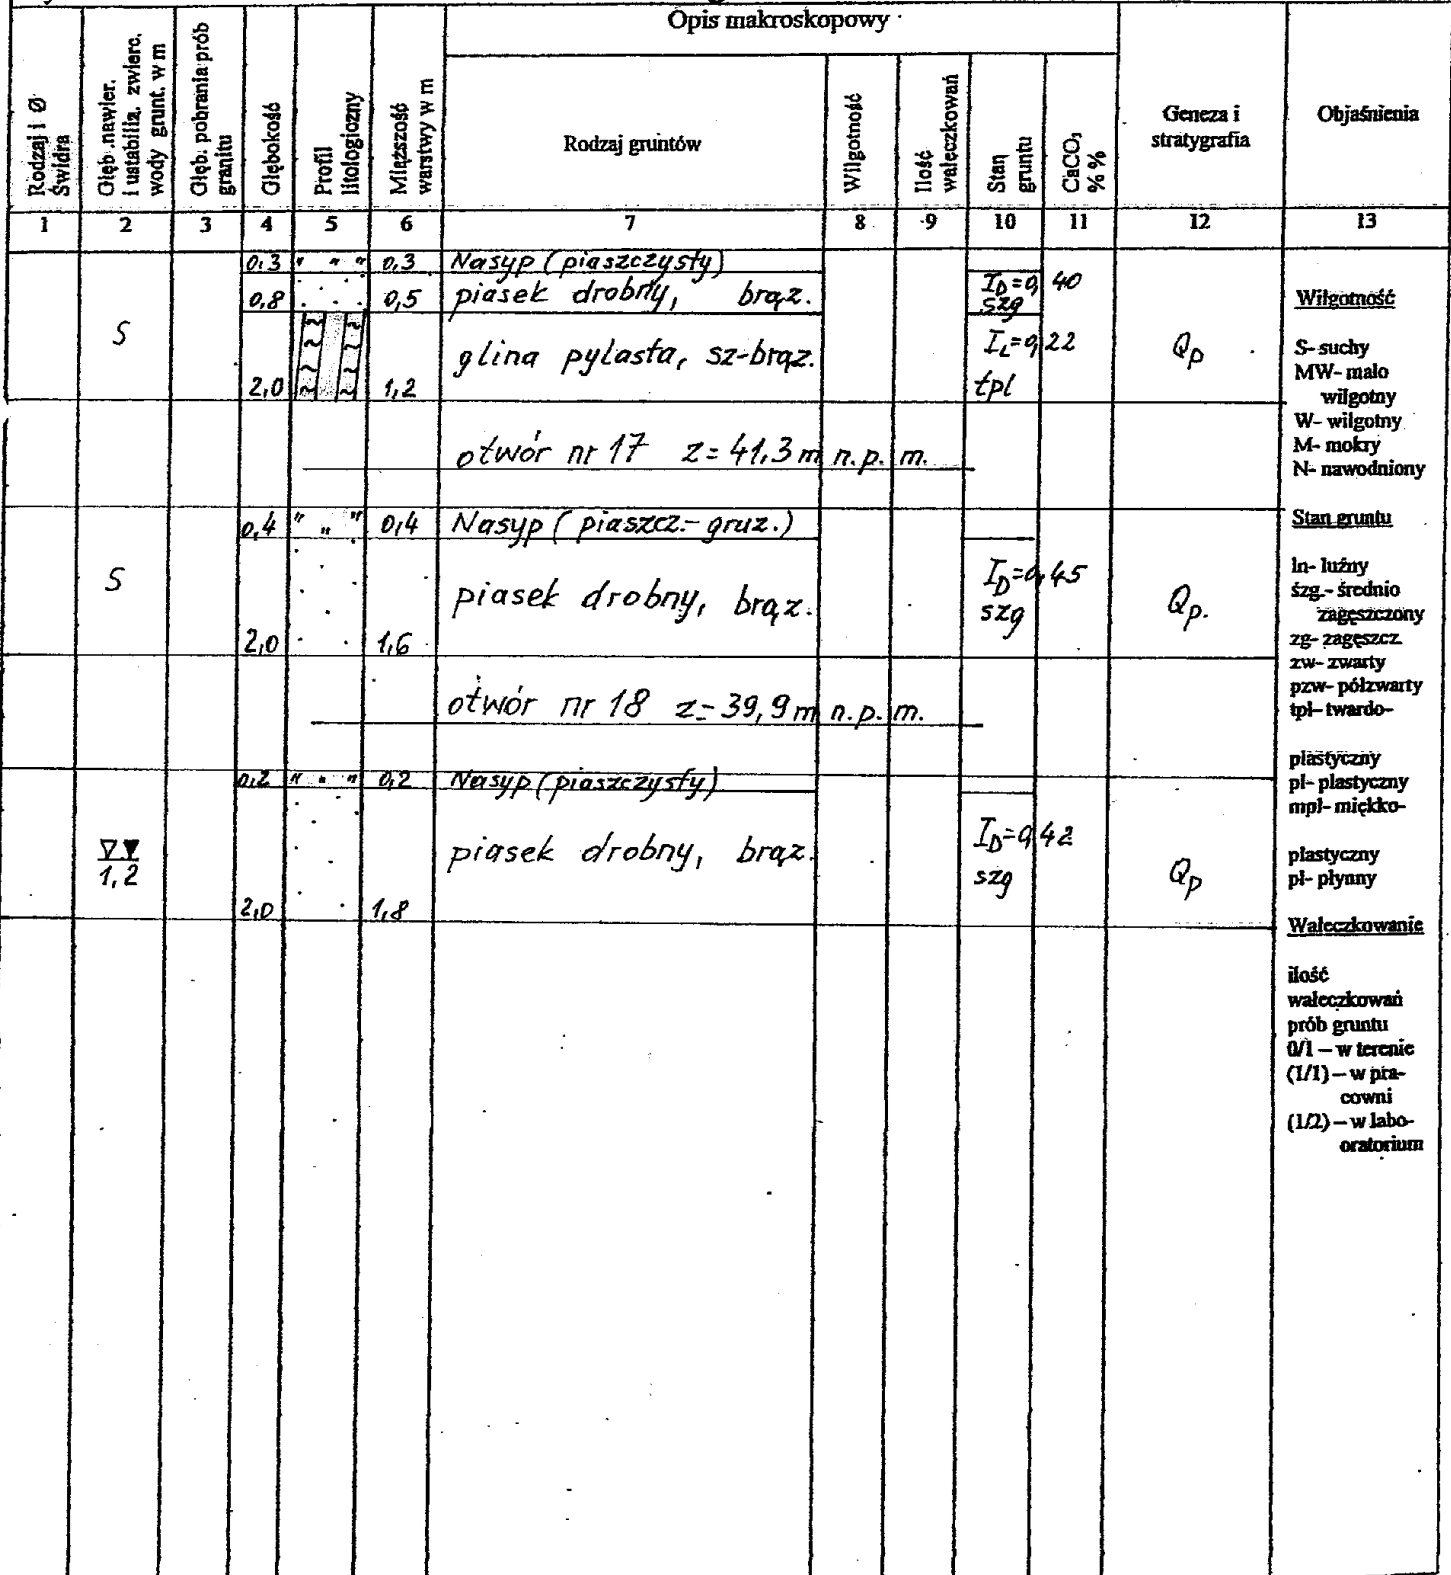 Opis makroskopowy
Rodzaj i Ø
Świdra
Głęb. nawier.
i ustabiliz. zwierc.
wody grunt. w m
Głęb. pobrania prób
granitu
Głębokość
Profil
litologiczny
Miąższość
warstwy w m
Rodzaj gruntów
Wilgotność
Ilość
wałeczkowań
Stan
gruntu
CaCO₃
% %
Geneza i
stratygrafia
Objaśnienia
1 2 3 4 5 6 7 8 9 10 11 12 13
0,3 " " " 0,3 Nasyp (piaszczysty)
0,8 0,5 piasek drobny, brąz. I_D=0,40
szg
S glina pylasta, sz-brąz. I_L=0,22 Qp
2,0 1,2 tpl
otwór nr 17 z=41,3 m n.p.m.
0,4 " " " 0,4 Nasyp (piaszcz.-gruz.)
S piasek drobny, brąz. I_D=0,45
szg Qp.
2,0 1,6
otwór nr 18 z=39,9 m n.p.m.
0,2 " " " 0,2 Nasyp (piaszczysty)
1,2 piasek drobny, brąz. I_D=0,42
szg Qp
2,0 1,8
Wilgotność
S- suchy
MW- mało
wilgotny
W- wilgotny
M- mokry
N- nawodniony
Stan gruntu
ln- luźny
śzg.- średnio
zagęszczony
zg- zagęszcz.
zw- zwarty
pzw- półzwarty
tpl- twardo-
plastyczny
pl- plastyczny
mpl- miękko-
plastyczny
pł- płynny
Wałeczkowanie
ilość
wałeczkowań
prób gruntu
0/1 – w terenie
(1/1) – w pra-
cowni
(1/2) – w labo-
oratorium